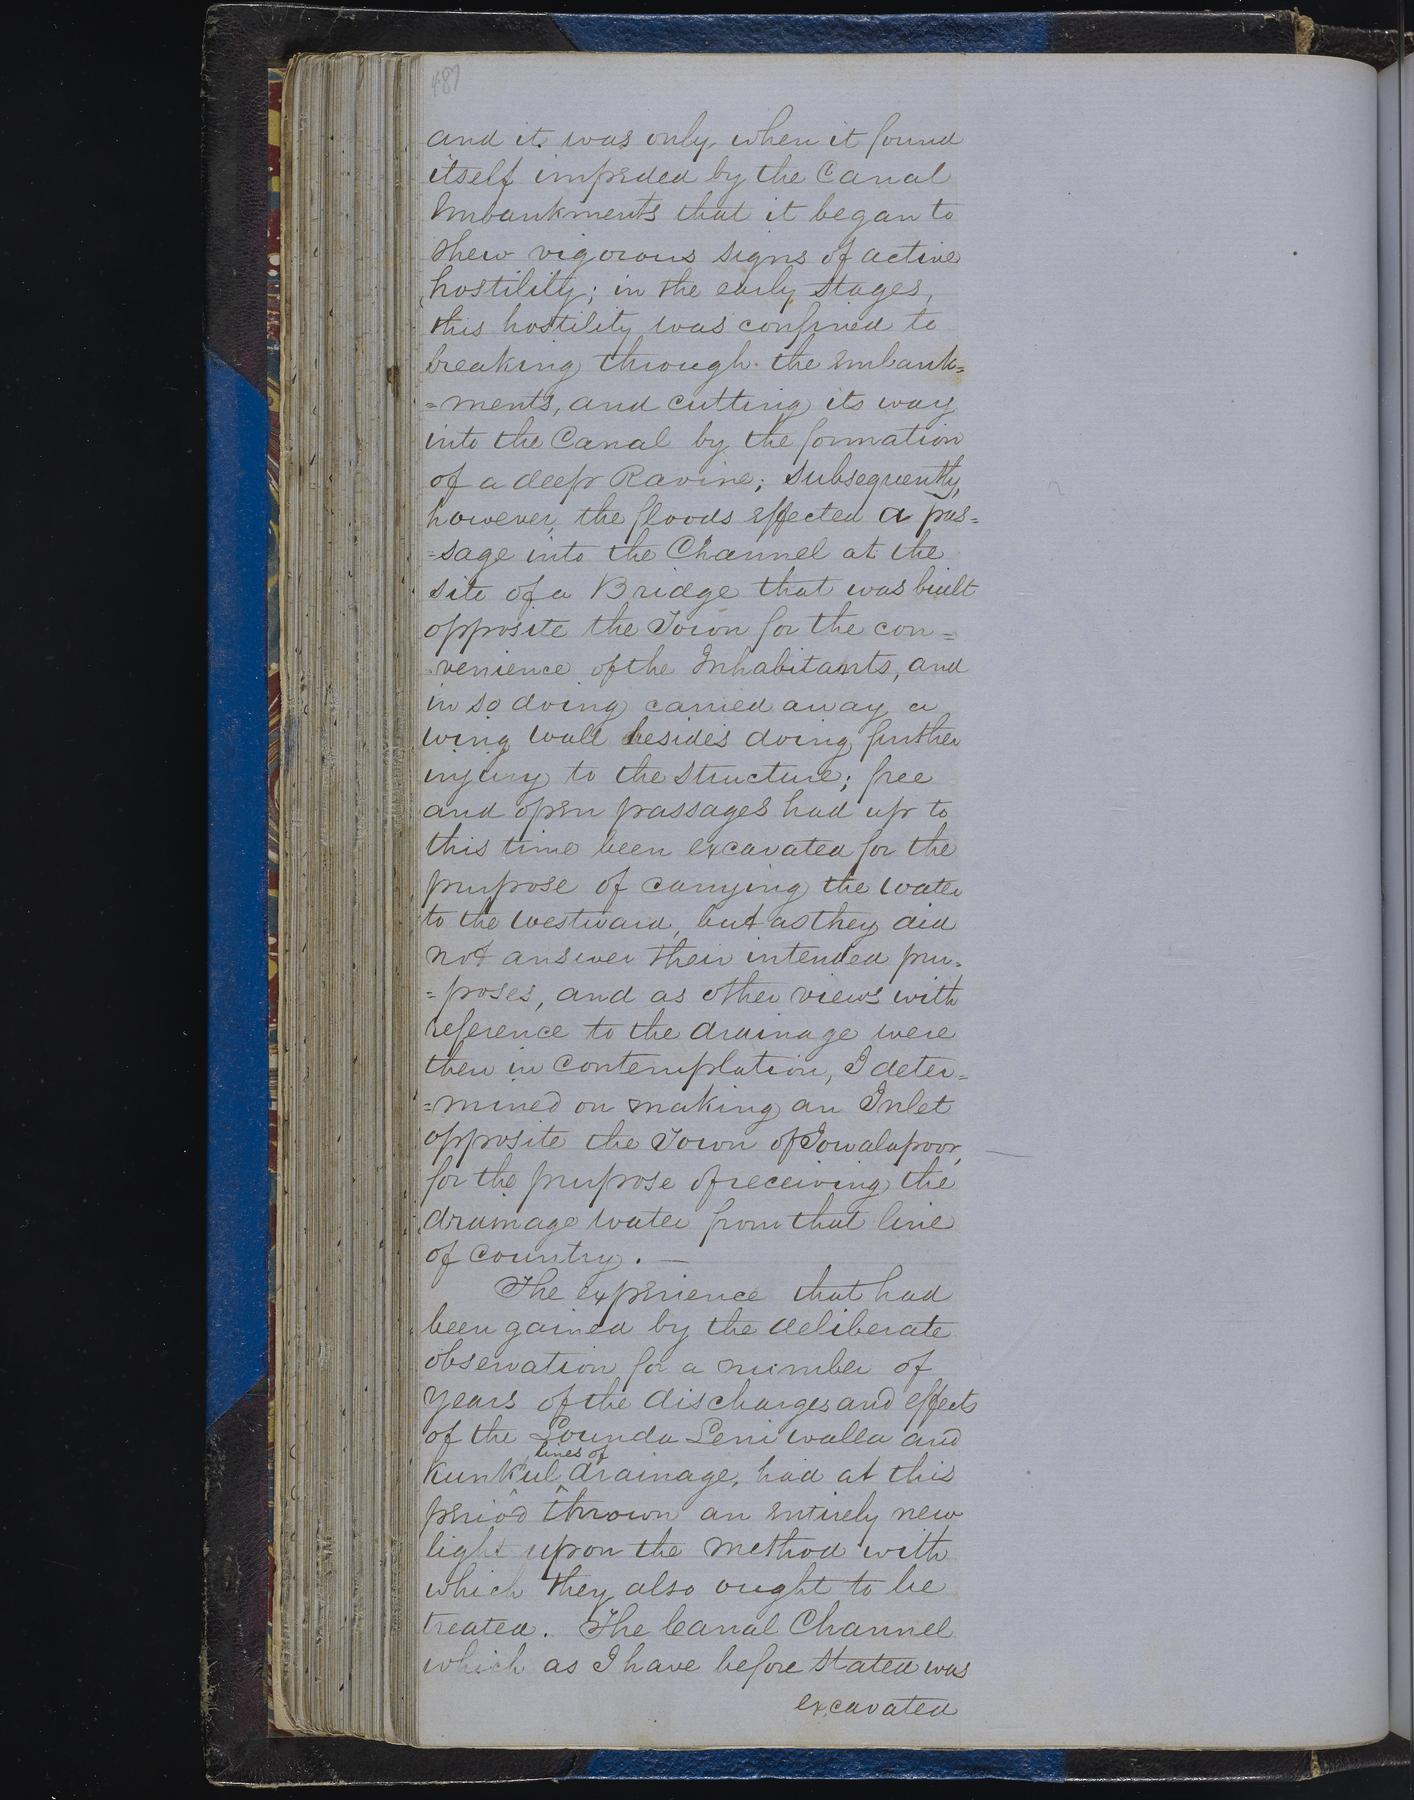 487
and it was only when it found
itself impeded by the Canal
Embankments that it began to
shew vigorous signs of active
hostility; in the early stages,
this hostility was confined to
breaking through the embank=
=ments, and cutting its way
into the Canal by the formation
of a deep Ravine; subsequently,
however, the floods effected a pas=
=sage into the Channel at the
site of a Bridge that was built
opposite the Town for the con=
venience of the Inhabitants, and
in so doing carried away a
wing wall besides doing further
injury to the structure; free
and open passages had up to
this time been excavated for the
purpose of carrying the water
to the westward, but as they did
not answer their intended pur=
=poses, and as other views with
reference to the drainage were
then in contemplation, I deter=
=mined on making an Inlet
opposite the Town of Jowalapoor,
for the purpose of receiving the
drainage water from that line
of country. —
The experience that had
been gained by the deliberate
observation for a number of
years of the discharges and effects
of the Lounda Leni walla and
lines of
Kunkul drainage, had at this
period thrown an entirely new
light upon the method with
which they also ought to be
treated. The Canal Channel
which as I have before stated was
excavated